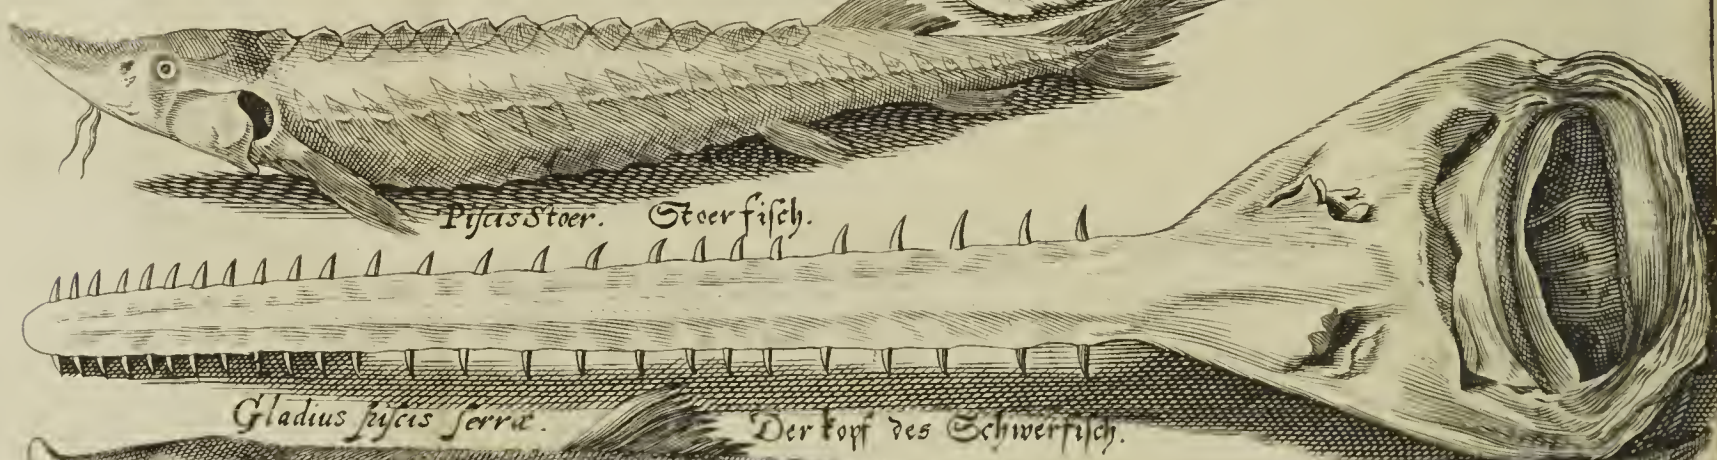 Piſcis Stoer. Stoer fiſch.
Gladius piſcis ſerræ. Der kopf des Schwerfiſch.